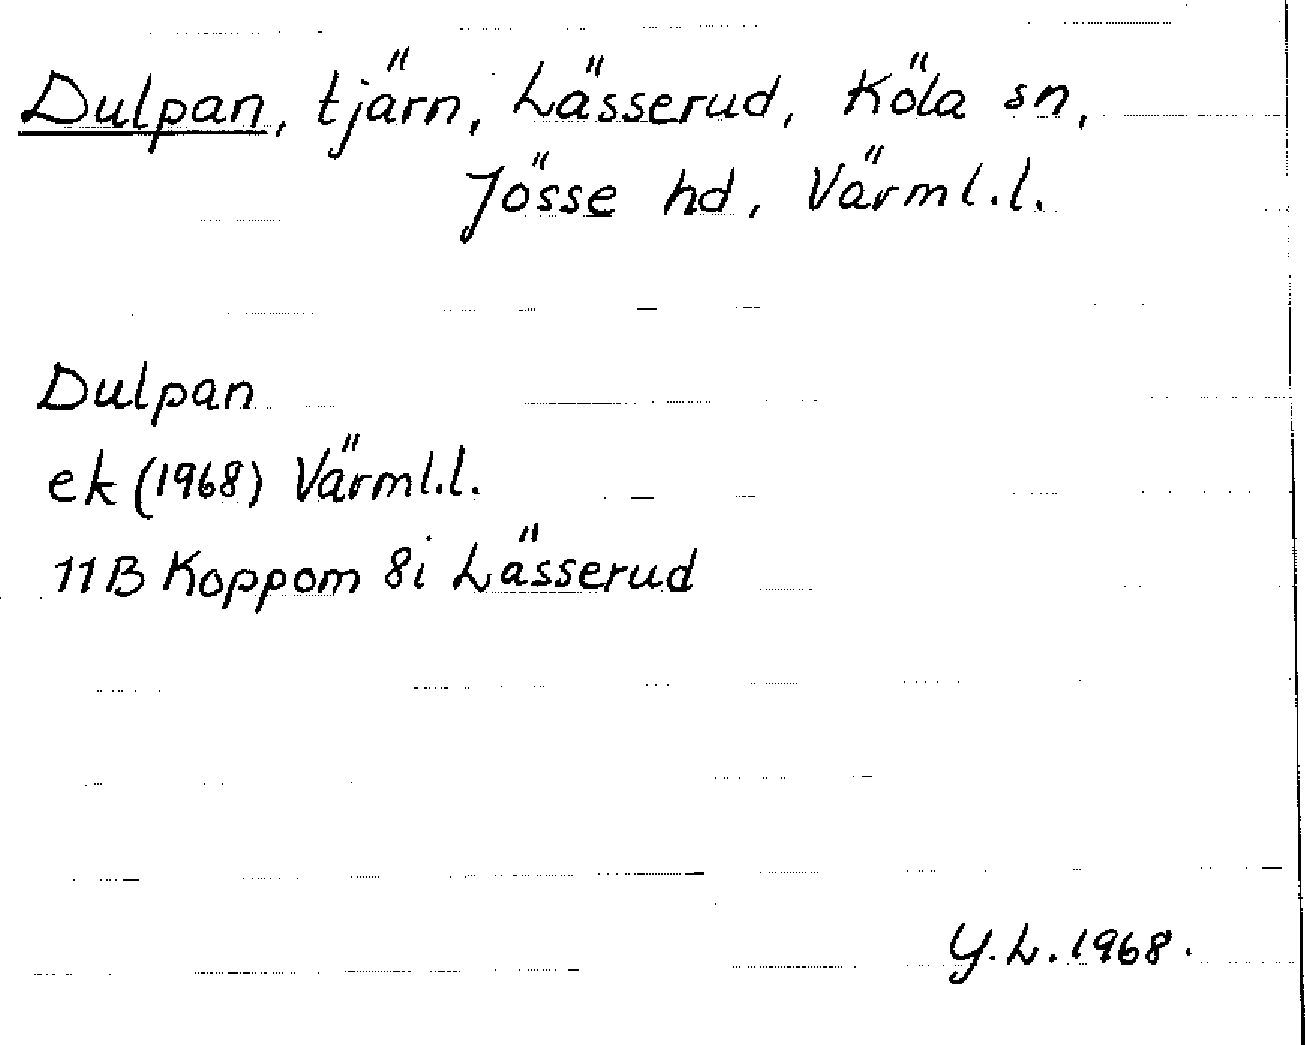 Dulpan, tjärn, Lässerud, Köla sn,
Jösse hd, Värml.l.
Dulpan
ek (1968) Värml.l.
11B Koppom 8i Lässerud
Y.L. 1968.